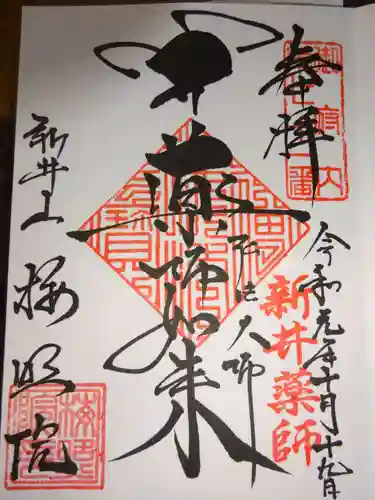 奉拝
令和元年十月十九日
新井薬師
薬師如来
弘法大師
新井山
梅照院